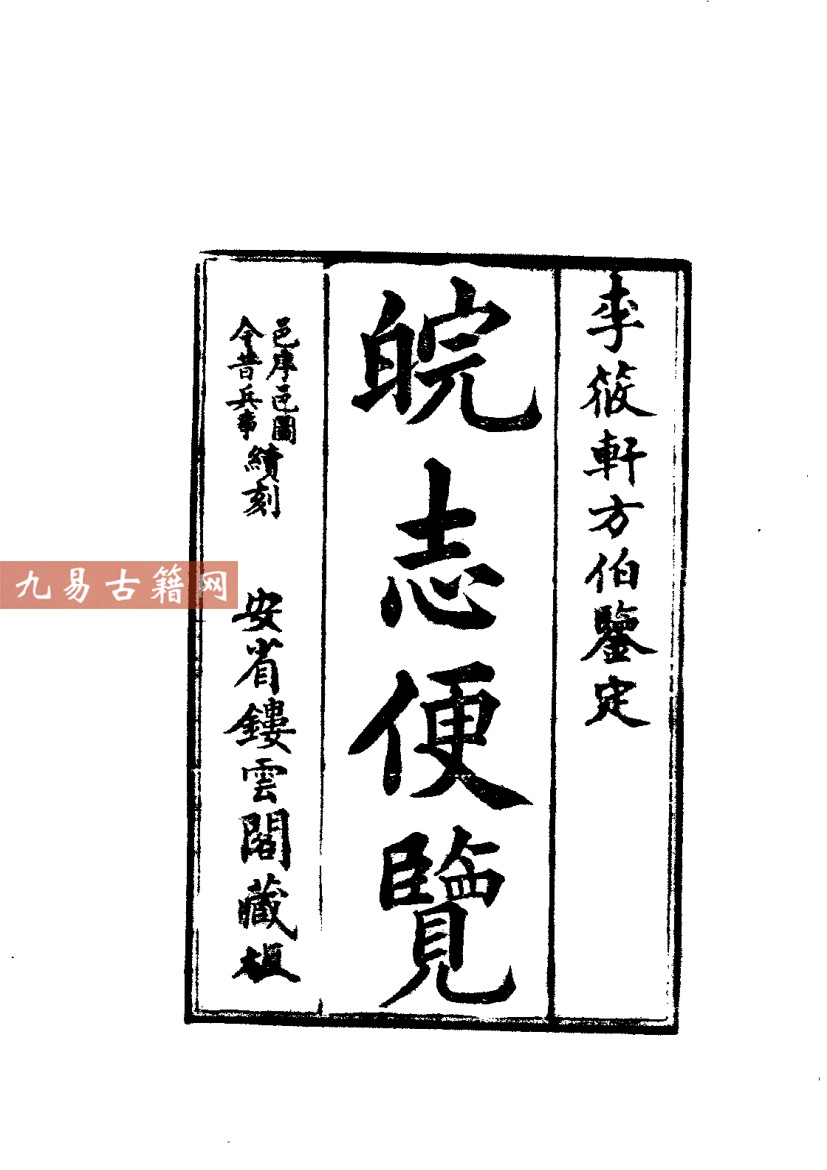 李筱軒方伯鑒定
皖志便覽
邑序邑圖
今昔兵事
續刻
安省鏤雲閣藏板
九易古籍网